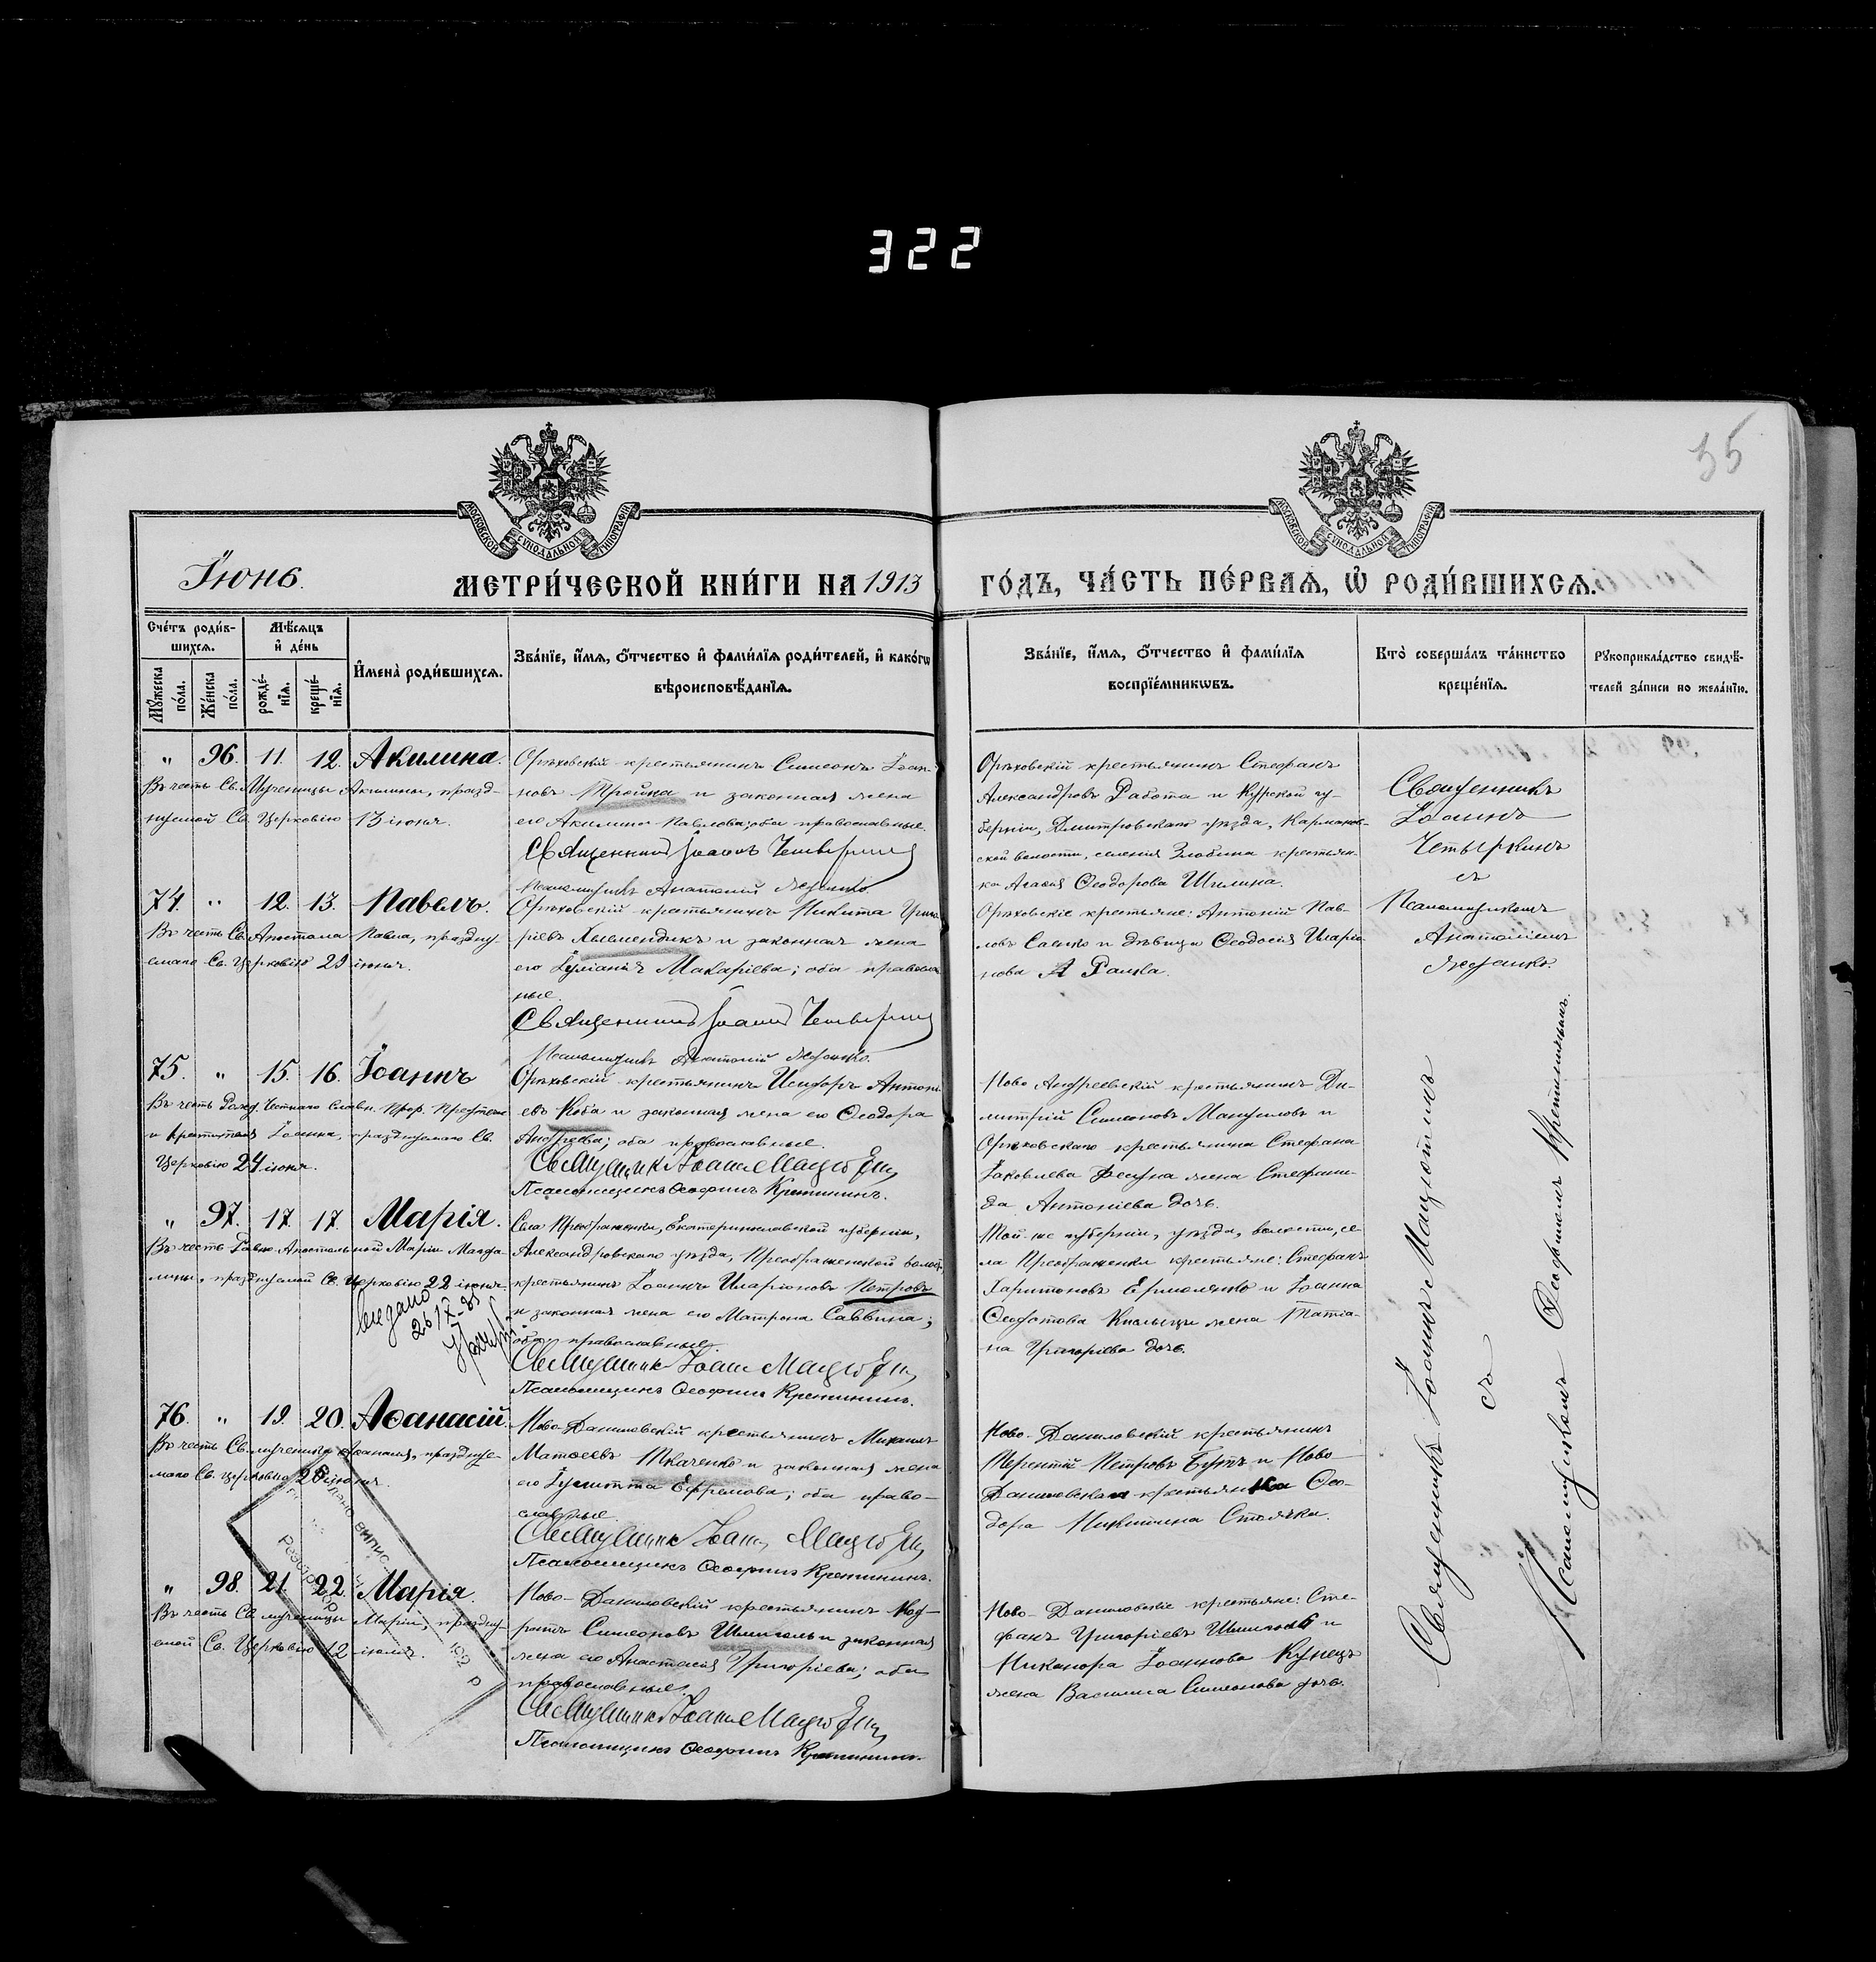 322
35
МОСКОВСКОЙ СѴНОДАЛЬНОЙ ТИПОГРАФІИ
МОСКОВСКОЙ СѴНОДАЛЬНОЙ ТИПОГРАФІИ
Іюнь.
МЕТРИ́ЧЕСКОЙ КНИ́ГИ НА 1913 ГО́ДЪ, ЧА́СТЬ ПЕ́РВАЯ, Ѡ РОДИ́ВШИХСЯ.
Сче́тъ роди́в-
шихся.
Мѣ́сяцъ
и҆ де́нь
Мꙋ́жеска по́ла.
Же́нска по́ла.
рожде́-
нїя.
креще́-
нїя.
И҆мена̀ роди́вшихся.
Зва́нїе, и҆́мя, ѻ҆́тчество и҆ фами́лїя роди́телей, и҆ како́гѡ
вѣроисповѣ́данїя.
Зва́нїе, и҆́мя, ѻ҆́тчество и҆ фами́лїя
воспрїе́мникѡвъ.
Кто̀ соверша́лъ та́инство
креще́нїя.
Рꙋкоприкла́дство свидѣ́-
телей за́писи по жела́нїю.
" 96. 11. 12. Акилина.
Въ честь Св. Мученицы Акилины, празд-
нуемой Св. Церковію 13 іюня.
Орѣховскій крестьянинъ Симеонъ Іоан-
новъ Тройна и законная жена
его Акилина Павлова; оба православные.
Священникъ Іоаннъ Четыркинъ
Псаломщикъ Анатолій
Орѣховскій крестьянинъ Стефанъ
Александровъ Работа и Курской гу-
берніи, Дмитровскаго уѣзда,
ской волости, селенія Злобина крестьян-
ка Агаѳія Ѳеодорова Шилина.
Священникъ
Іоаннъ
Четыркинъ
съ
Псаломщикомъ
Анатоліемъ
74. " 12. 13. Павелъ.
Въ честь Св. Апостола Павла, праздну-
емаго Св. Церковію 29 іюня.
Орѣховскій крестьянинъ Никита Григо-
ріевъ и законная жена
его Іуліанія Макаріева; оба православ-
ные.
Священникъ Іоаннъ Четыркинъ
Псаломщикъ Анатолій
Орѣховскіе крестьяне: Антоній Пав-
ловъ Сапко и дѣвица Ѳеодосія Иларіо-
нова
75. " 15. 16. Іоаннъ
Въ честь Рожд. Честнаго Славн. Прор. Предтечи
и Крестителя Іоанна, празднуемаго Св.
Церковію 24 іюня.
Орѣховскій крестьянинъ Исидоръ Антоні-
евъ Коба и законная жена его Ѳеодора
Андреева; оба православные.
Священникъ Іоаннъ Мацютинъ
Псаломщикъ Ѳеофилъ Кретининъ.
Ново-Андреевскій крестьянинъ Ди-
митрій Симеоновъ Мануиловъ и
Орѣховскаго крестьянина Стефана
Іаковлева жена Стефани-
да Антоніева дочь.
" 97. 17. 17. Марія.
Въ честь Равно Апостольной Маріи Магда-
лины, празднуемой Св. Церковію 22 іюля.
Села Преображенки, Екатеринославской губерніи,
Александровскаго уѣзда, Преображенской волости,
крестьянинъ Іоаннъ Иларіоновъ Петровъ
и законная жена его Матрона Саввина;
оба православные.
Священникъ Іоаннъ Мацютинъ
Псаломщикъ Ѳеофилъ Кретининъ.
Той-же губерніи, уѣзда, волости, се-
ла Преображенки крестьяне: Стефанъ
Харитоновъ Ермоленко и Іоанна
Ѳедотова жена Татіа-
на Григоріева дочь.
76. " 19. 20. Аѳанасій.
Въ честь Св. мученика Аѳанасія, праздну-
маго Св. Церковію іюня.
Ново-Даниловскій крестьянинъ Михаилъ
Матѳеевъ Ткаченко и законная жена
его Іулитта Ефремова; оба право-
славные.
Священникъ Іоаннъ Мацютинъ
Псаломщикъ Ѳеофилъ Кретининъ.
Ново-Даниловскій крестьянинъ
Терентій Петровъ Бутъ и Ново-
Даниловская крестьянка Ѳео-
дора Никитина Столяка.
" 98. 21. 22. Марія.
Въ честь Св. мученицы Маріи, праздну-
емой Св. Церковію 12 іюля.
Ново-Даниловскій крестьянинъ Код-
ратъ Симеоновъ Шмиголь и законная
жена его Анастасія Григоріева; оба
православные.
Священникъ Іоаннъ Мацютинъ
Псаломщикъ Ѳеофилъ Кретининъ.
Ново-Даниловскіе крестьяне: Сте-
фанъ Григоріевъ Шмиголь и
Никанора Іоаннова Кунецъ
жена Василиса Симеонова дочь.
Священникъ Іоаннъ Мацютинъ
съ
Псаломщикомъ Ѳеофиломъ Кретининымъ.